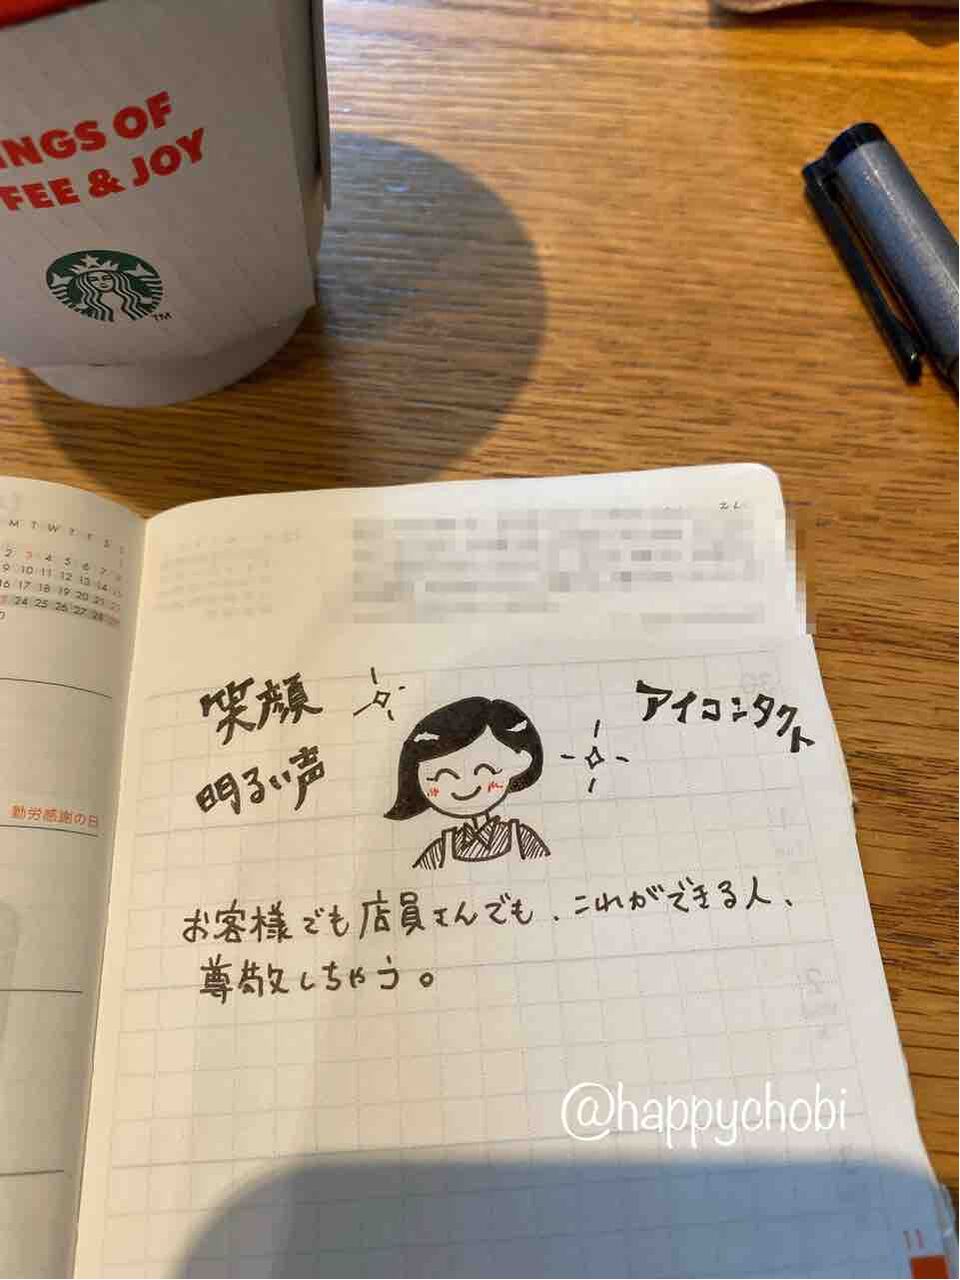 INGS OF
FEE & JOY
TM
M T W T F S S
2 3 4 5 6 7 8
9 10 11 12 13 14 15
16 17 18 19 20 21 22
24 25 26 27 28 29
勤労感謝の日
笑顔
アイコンタクト
明るい声
お客様でも店員さんでも、これができる人、
尊敬しちゃう。
@happychobi
11